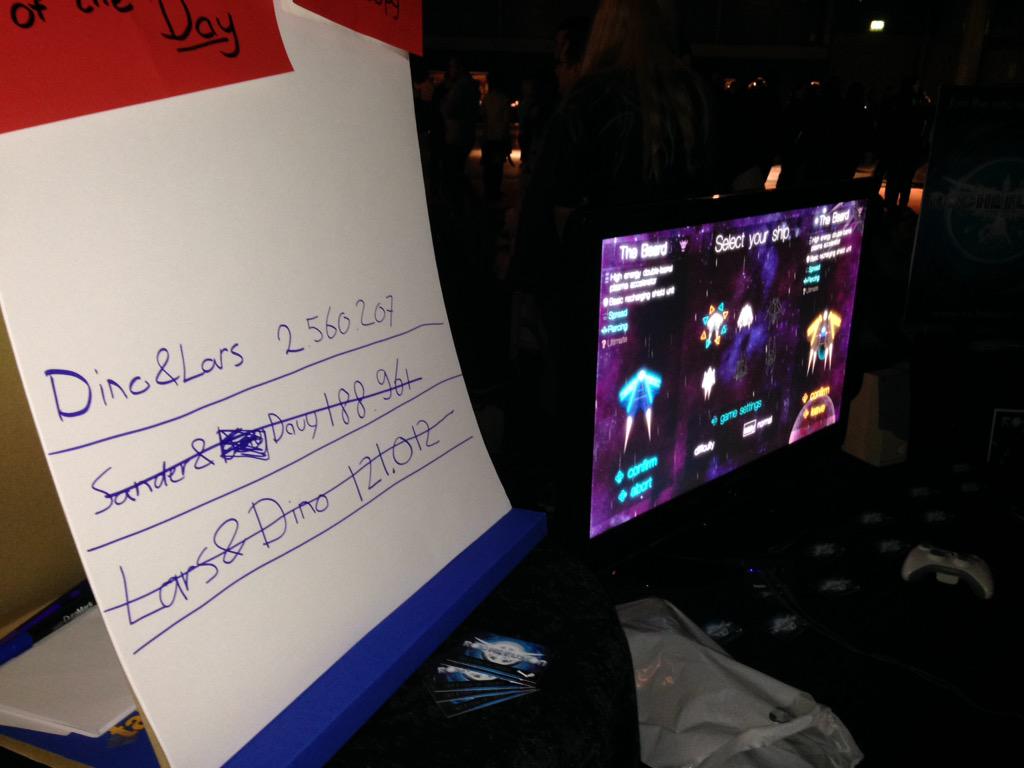 of the Day
Dino&Lars 2.560.207
Sander& Davy 188.961
Lars&Dino 121.012
Select your ship
The Beard
High energy double-barrel
plasma accelerator
Basic recharging shield unit
Spread
Piercing
Ultimate
confirm
abort
game settings
difficulty
normal
The Beard
High energy double-barrel
plasma accelerator
Basic recharging shield unit
Spread
Piercing
Ultimate
confirm
leave